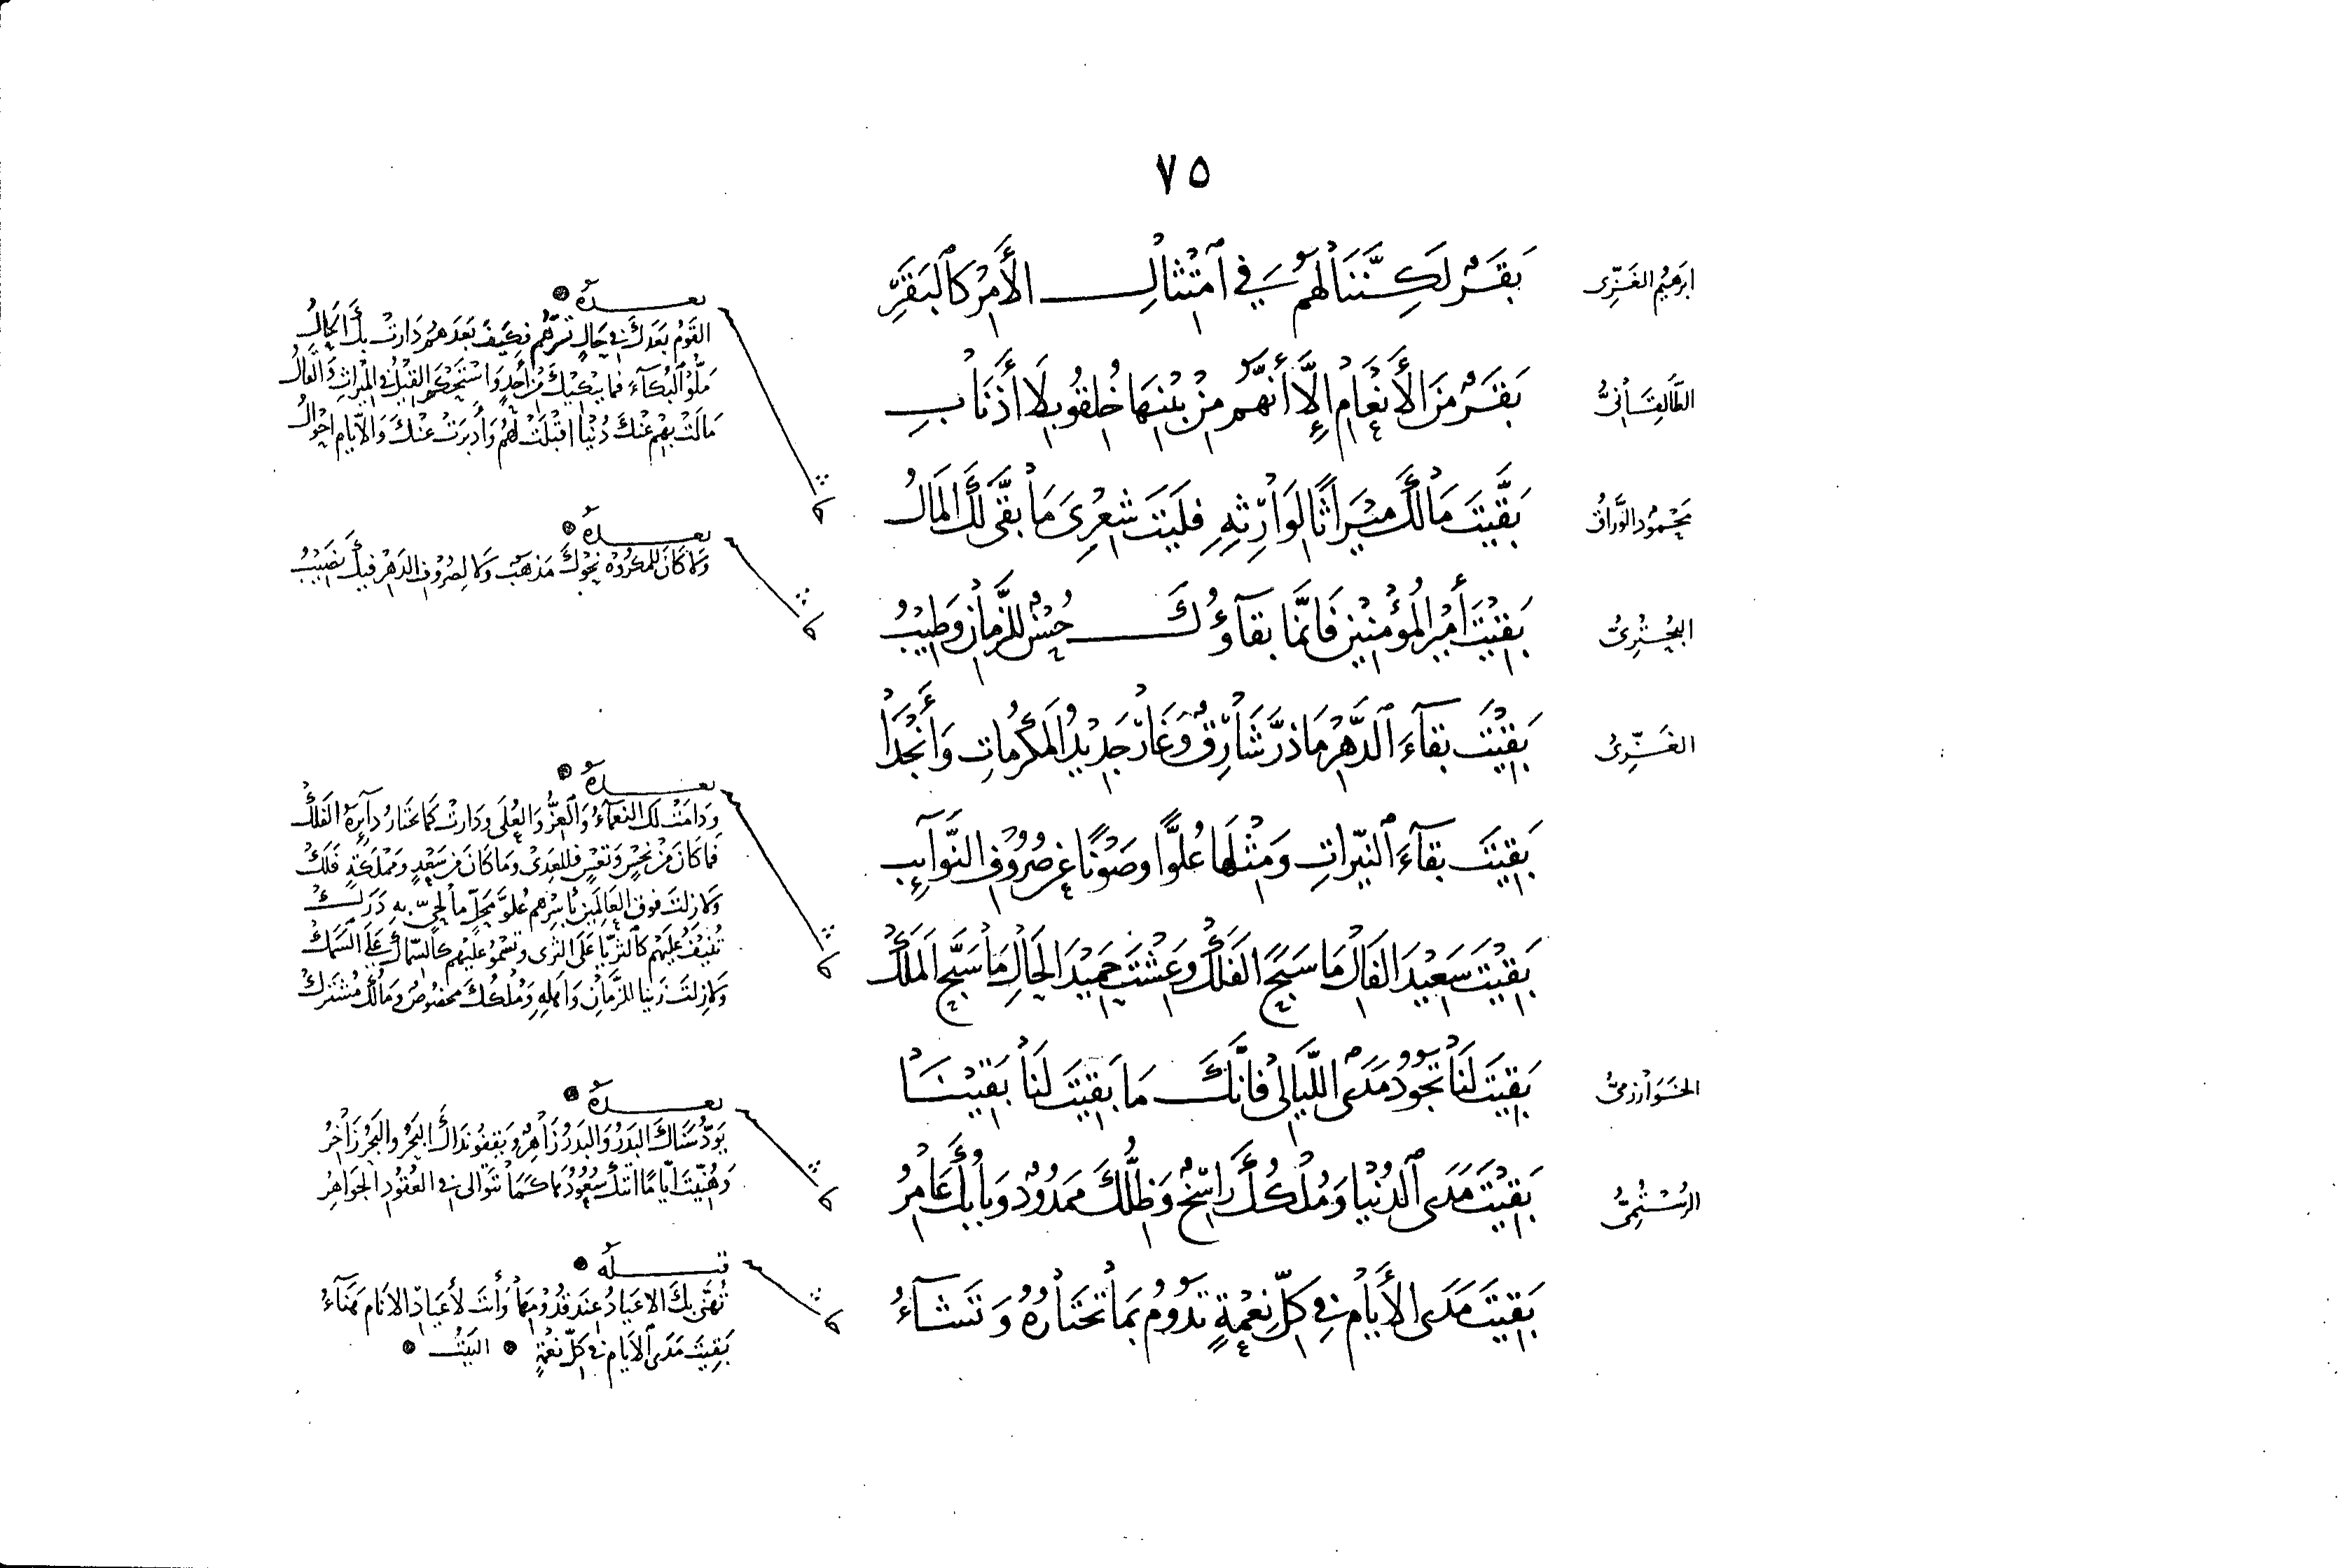 ٧٥
ابرهيم الغَزِّى
بَقَرٌ لَكِنَّنَا لَهُمُ فِي امْتِثَالِ الأَمْرِ كَالبَقَرِ
الطَّالِقَانِيُّ
بَقَرٌ مِنَ الأَنْعَامِ إِلَّا أَنَّهُمْ مِنْ بَيْنِهَا خُلِقُوا بِلَا أَذْنَابِ
مَحْمُودُ الوَرَّاقُ
بَقَّيْتَ مَالَكَ مِيْرَاثًا لِوَارِثِهِ فَلَيْتَ شِعْرِى مَا بَقَّى لَكَ المَالُ
بعده
القَوْمُ بَعْدَكَ فِي حَالٍ تَسُرُّهُمُ فَكَيْفَ بَعْدَهُمُ دَارَتْ بِكَ الحَالُ
مَلُّوا البُكَآءَ فَمَا يَبْكِيْكَ مِنْ أَحَدٍ وَاسْتَحْكَمَ القِيْلُ فِي المِيْرَاثِ وَالقَالُ
مَالَتْ بِهِمْ عَنْكَ دُنْيَا اقْبَلَتْ لَهُمُ وَأَدْبَرَتْ عَنْكَ وَالأَيَّامُ احْوَالُ
البُحْتُرِىُّ
بَقِيْتَ أَمِيْرَ المُؤْمِنِيْنَ فَانَّمَا بَقَآؤُكَ حُسْنٌ لِلزَّمَانِ وَطِيْبُ
بعده
وَلَا كَانَ لِلمَكْرُوْهِ نَحْوَكَ مَذْهَبٌ وَلَا لِصُرُوْفِ الدَهْرِ فِيْكَ نَصِيْبُ
الغَزِّىُّ
بَقِيْتَ بَقَآءَ الدَّهْرِ مَا ذَرَّ شَارِقٌ وَغَارَ جَدِيْدُ المَكْرُمَاتِ وَأَنْجَدَا
بَقِيْتَ بَقَآءَ النَيِّرَاتِ وَمِثْلَهَا عُلُوًّا وَصَوْنًا عَنْ صُرُوْفِ النَّوَآئِبِ
بَقِيْتَ سَعِيْدَ الفَالِ مَا سَبَحَ الفَلَكُ وَعِشْتَ حَمِيْدَ الحَالِ مَا سَبَّحَ المَلَكُ
بعده
وَدَامَتْ لَكَ النَعْمَآءُ وَالعِزُّ وَالعُلَى وَدَارَتْ كَمَا تَخْتَارُ دَآئِرَةُ الفَلَكْ
فَمَا كَانَ مِنْ نَحْسٍ وَتَعْسٍ فَلِلعِدَى وَمَا كَانَ مِنْ سَعْدٍ وَمَمْلَكَةٍ فَلَكْ
وَلَا زِلْتَ فَوْقَ العَالَمِيْنَ بِأَسْرِهِمْ عُلُوَّ مَحَلٍّ مَا لِحَيٍّ بِهِ دَرَكْ
تُنِيْفُ عَلَيْهِمْ كَالثُرَيَّا عَلَى الثَرَى وَتَسْمُو عَلَيْهِمْ كَالسِّمَاكِ عَلَى السَمَكْ
وَلَا زِلْتَ زَيْنًا لِلزَّمَانِ وَأَهْلِهِ وَمُلْكُكَ مَخْصُوْصٌ وَمَالُكَ مُشْتَرَكْ
الخَوَارَزْمِىُّ
بَقِيْتَ لَنَا تَجُوْدُ مَدَى اللَّيَالِي فَانَّكَ مَا بَقِيْتَ لَنَا بَقِيْنَا
الرُسْتُمِىُّ
بَقِيْتَ مَدَى الدُنْيَا وَمُلْكُكَ رَاسِخٌ وَظِلُّكَ مَمْدُوْدٌ وَبَابُكَ عَامِرُ
بعده
يَوَدُّ سَنَاكَ البَدْرُ وَالبَدْرُ زَاهِرٌ وَيَقْفُو نَدَاكَ البَحْرُ وَالبَحْرُ زَاخِرُ
وَهُنِّيْتَ أَيَّامًا أَتَتْكَ سُعُوْدُهَا كَمَا تَتَوَالَى فِي العُقُوْدِ الجَوَاهِرُ
بَقِيْتَ مَدَى الأَيَّامِ فِي كُلِّ نِعْمَةٍ تَدُوْمُ بِمَا تَخْتَارُهُ وَتَشَآءُ
قبله
تُهَنَّى بِكَ الأَعْيَادُ عِنْدَ قُدُوْمِهَا وَأَنْتَ لأَعْيَادِ الأَنَامِ هَنَآءُ
بَقِيْتَ مَدَى الأَيَّامِ فِي كُلِّ نِعْمَةٍ البَيْتُ